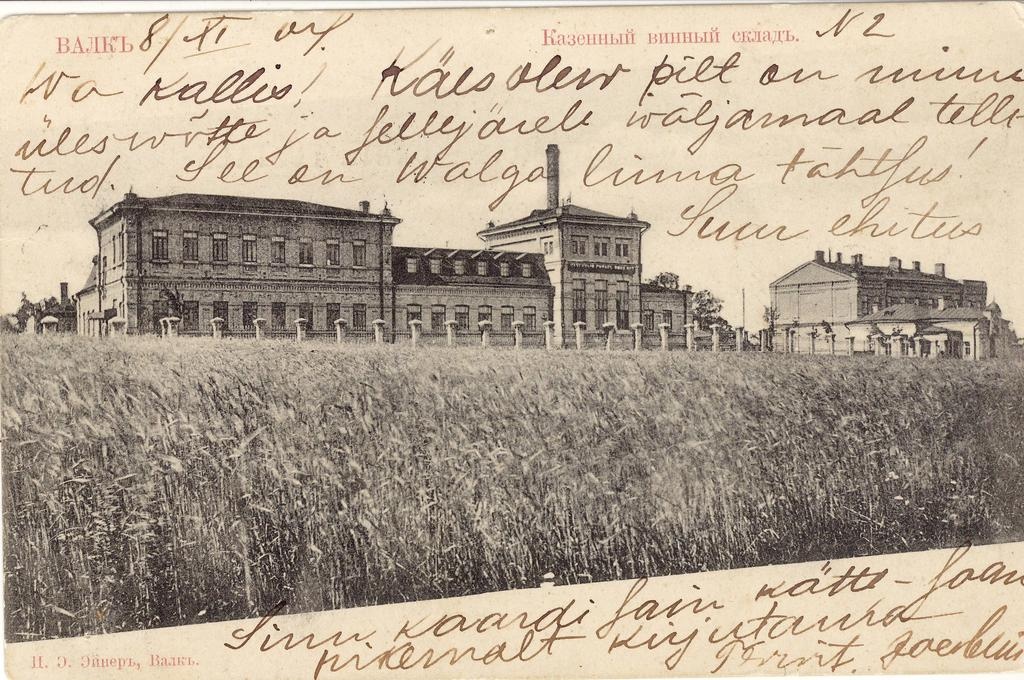 ВАЛКЪ 8/XI 04 Казенный винный складъ. N2
Wa kallis! Käesolew pilt on minu
üleswõtte ja selle järele wäljamaal telli-
tud. See on Walga linna tähtsus!
Suur ehitus
Sinu kaardi sain kätte – Soan
pikemalt kirjutama
Terwit.
И. Э. Эйнеръ, Валкъ.